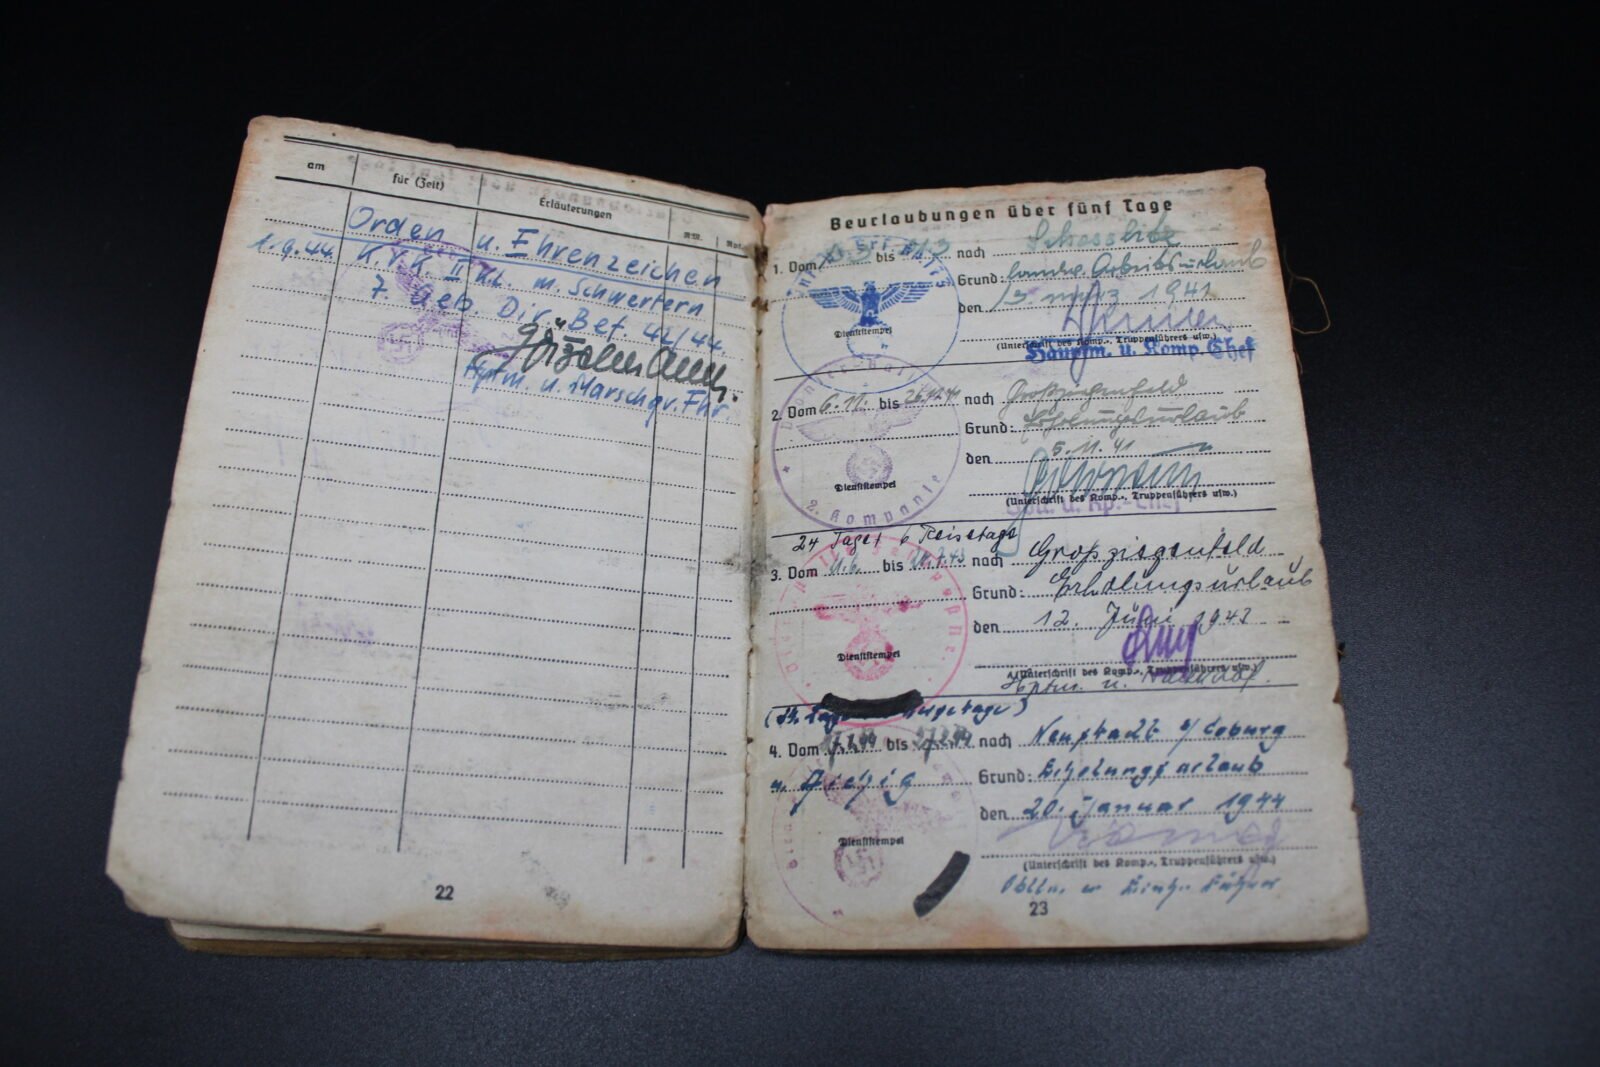 am für (Zeit) Erläuterungen R.M. Rpf.
Orden u. Ehrenzeichen
1.9.44. K.V.K. II Kl. m. Schwertern
7. Geb. Div. Bef. 42/44.
Hptm. u. Marschgr. Fhr.
22
Beurlaubungen über fünf Tage
1. Vom bis nach
Grund: Arbeitsurlaub
den 13 März 1941
Dienststempel
(Unterschrift des Komp.-, Truppenführers usw.)
Hauptm. u. Komp. Chef
2. Vom 6.11. bis nach Großziegenfeld
Grund: Erholungsurlaub
den 5.11.41
Dienststempel
(Unterschrift des Komp.-, Truppenführers usw.)
u. Kp.-Chef
2. Kompanie
24 Tage + 6 Reisetage
3. Vom bis nach Großziegenfeld
Grund: Erholungsurlaub
den 12. 1943
Dienststempel
(Unterschrift des Komp.-, Truppenführers usw.)
Hptm. u.
4. Vom bis nach Neustadt b/ Coburg
u. Grund: Erholungsurlaub
den 20. Januar 1944
Dienststempel
(Unterschrift des Komp.-, Truppenführers usw.)
Oblt. u.
23